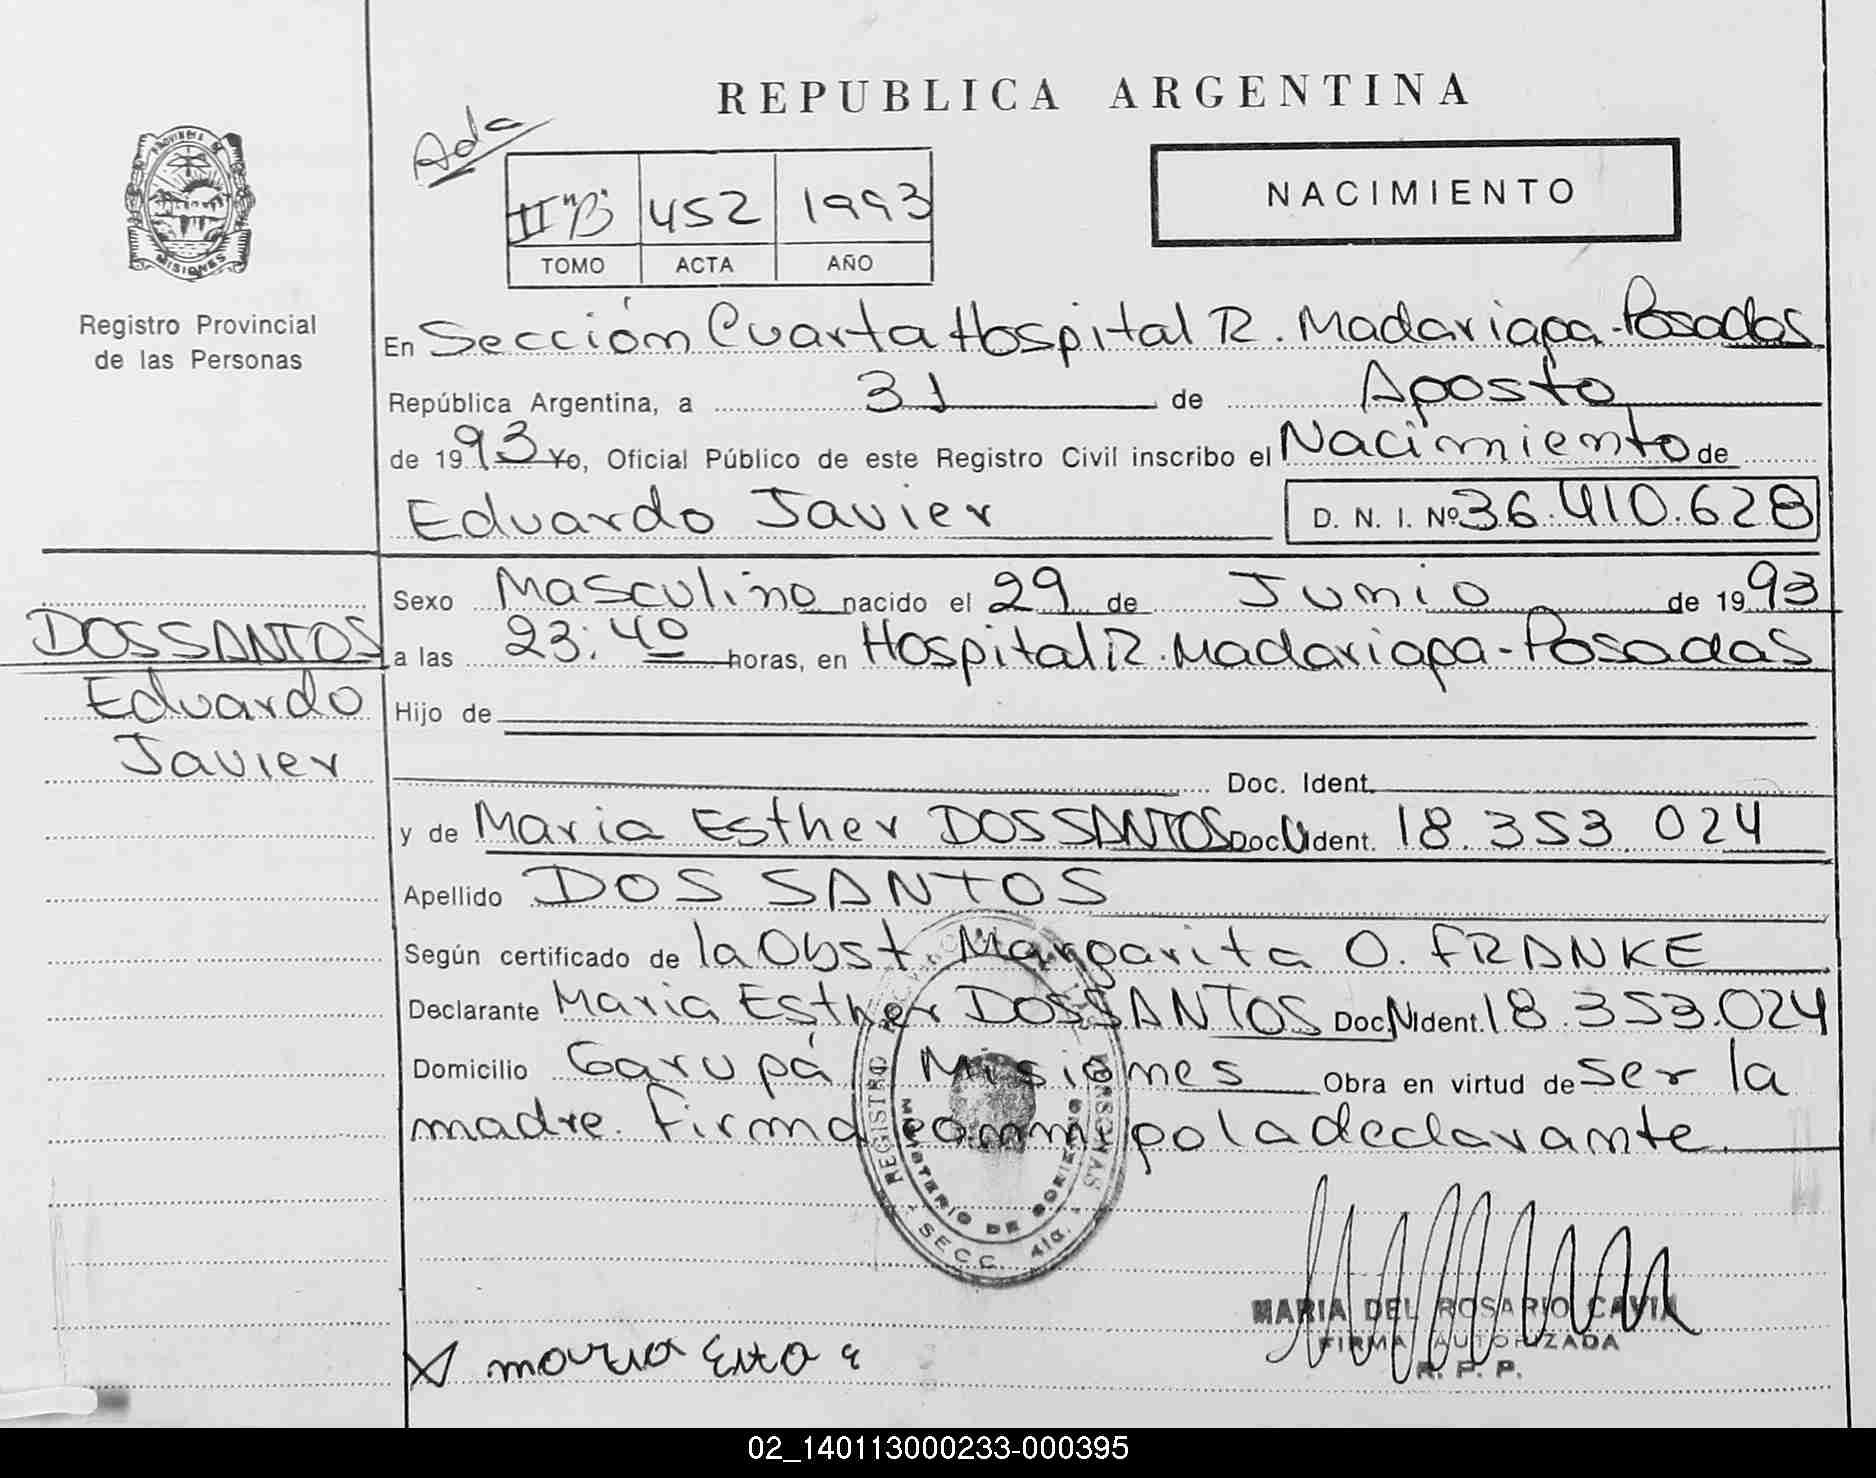 REPUBLICA ARGENTINA
Ada
PROVINCIA DE
MISIONES
Registro Provincial
de las Personas
II "B" 452 1993
TOMO ACTA AÑO
NACIMIENTO
En Sección Cuarta Hospital R. Madariaga-Posadas
República Argentina, a 31 de Agosto
de 1993 Yo, Oficial Público de este Registro Civil inscribo el Nacimiento de
Eduardo Javier D. N. I. Nº 36.410.628
Sexo Masculino nacido el 29 de Junio de 1993
DOS SANTOS
Eduardo
Javier
a las 23:40 horas, en Hospital R. Madariaga-Posadas
Hijo de
Doc. Ident.
y de Maria Esther DOS SANTOS Doc. N Ident. 18.353.024
Apellido DOS SANTOS
Según certificado de la Obst. Margarita O. FRANKE
Declarante Maria Esther DOS SANTOS Doc. N Ident. 18.353.024
Domicilio Garupá Misiones Obra en virtud de ser la
madre. Firma conmigo la declarante.
REGISTRO PERSONAS
MINISTERIO DE GOBIERNO
SECC. 4ta.
MARIA DEL ROSARIO CAVIA
FIRMA AUTORIZADA
R. P. P.
02_140113000233-000395